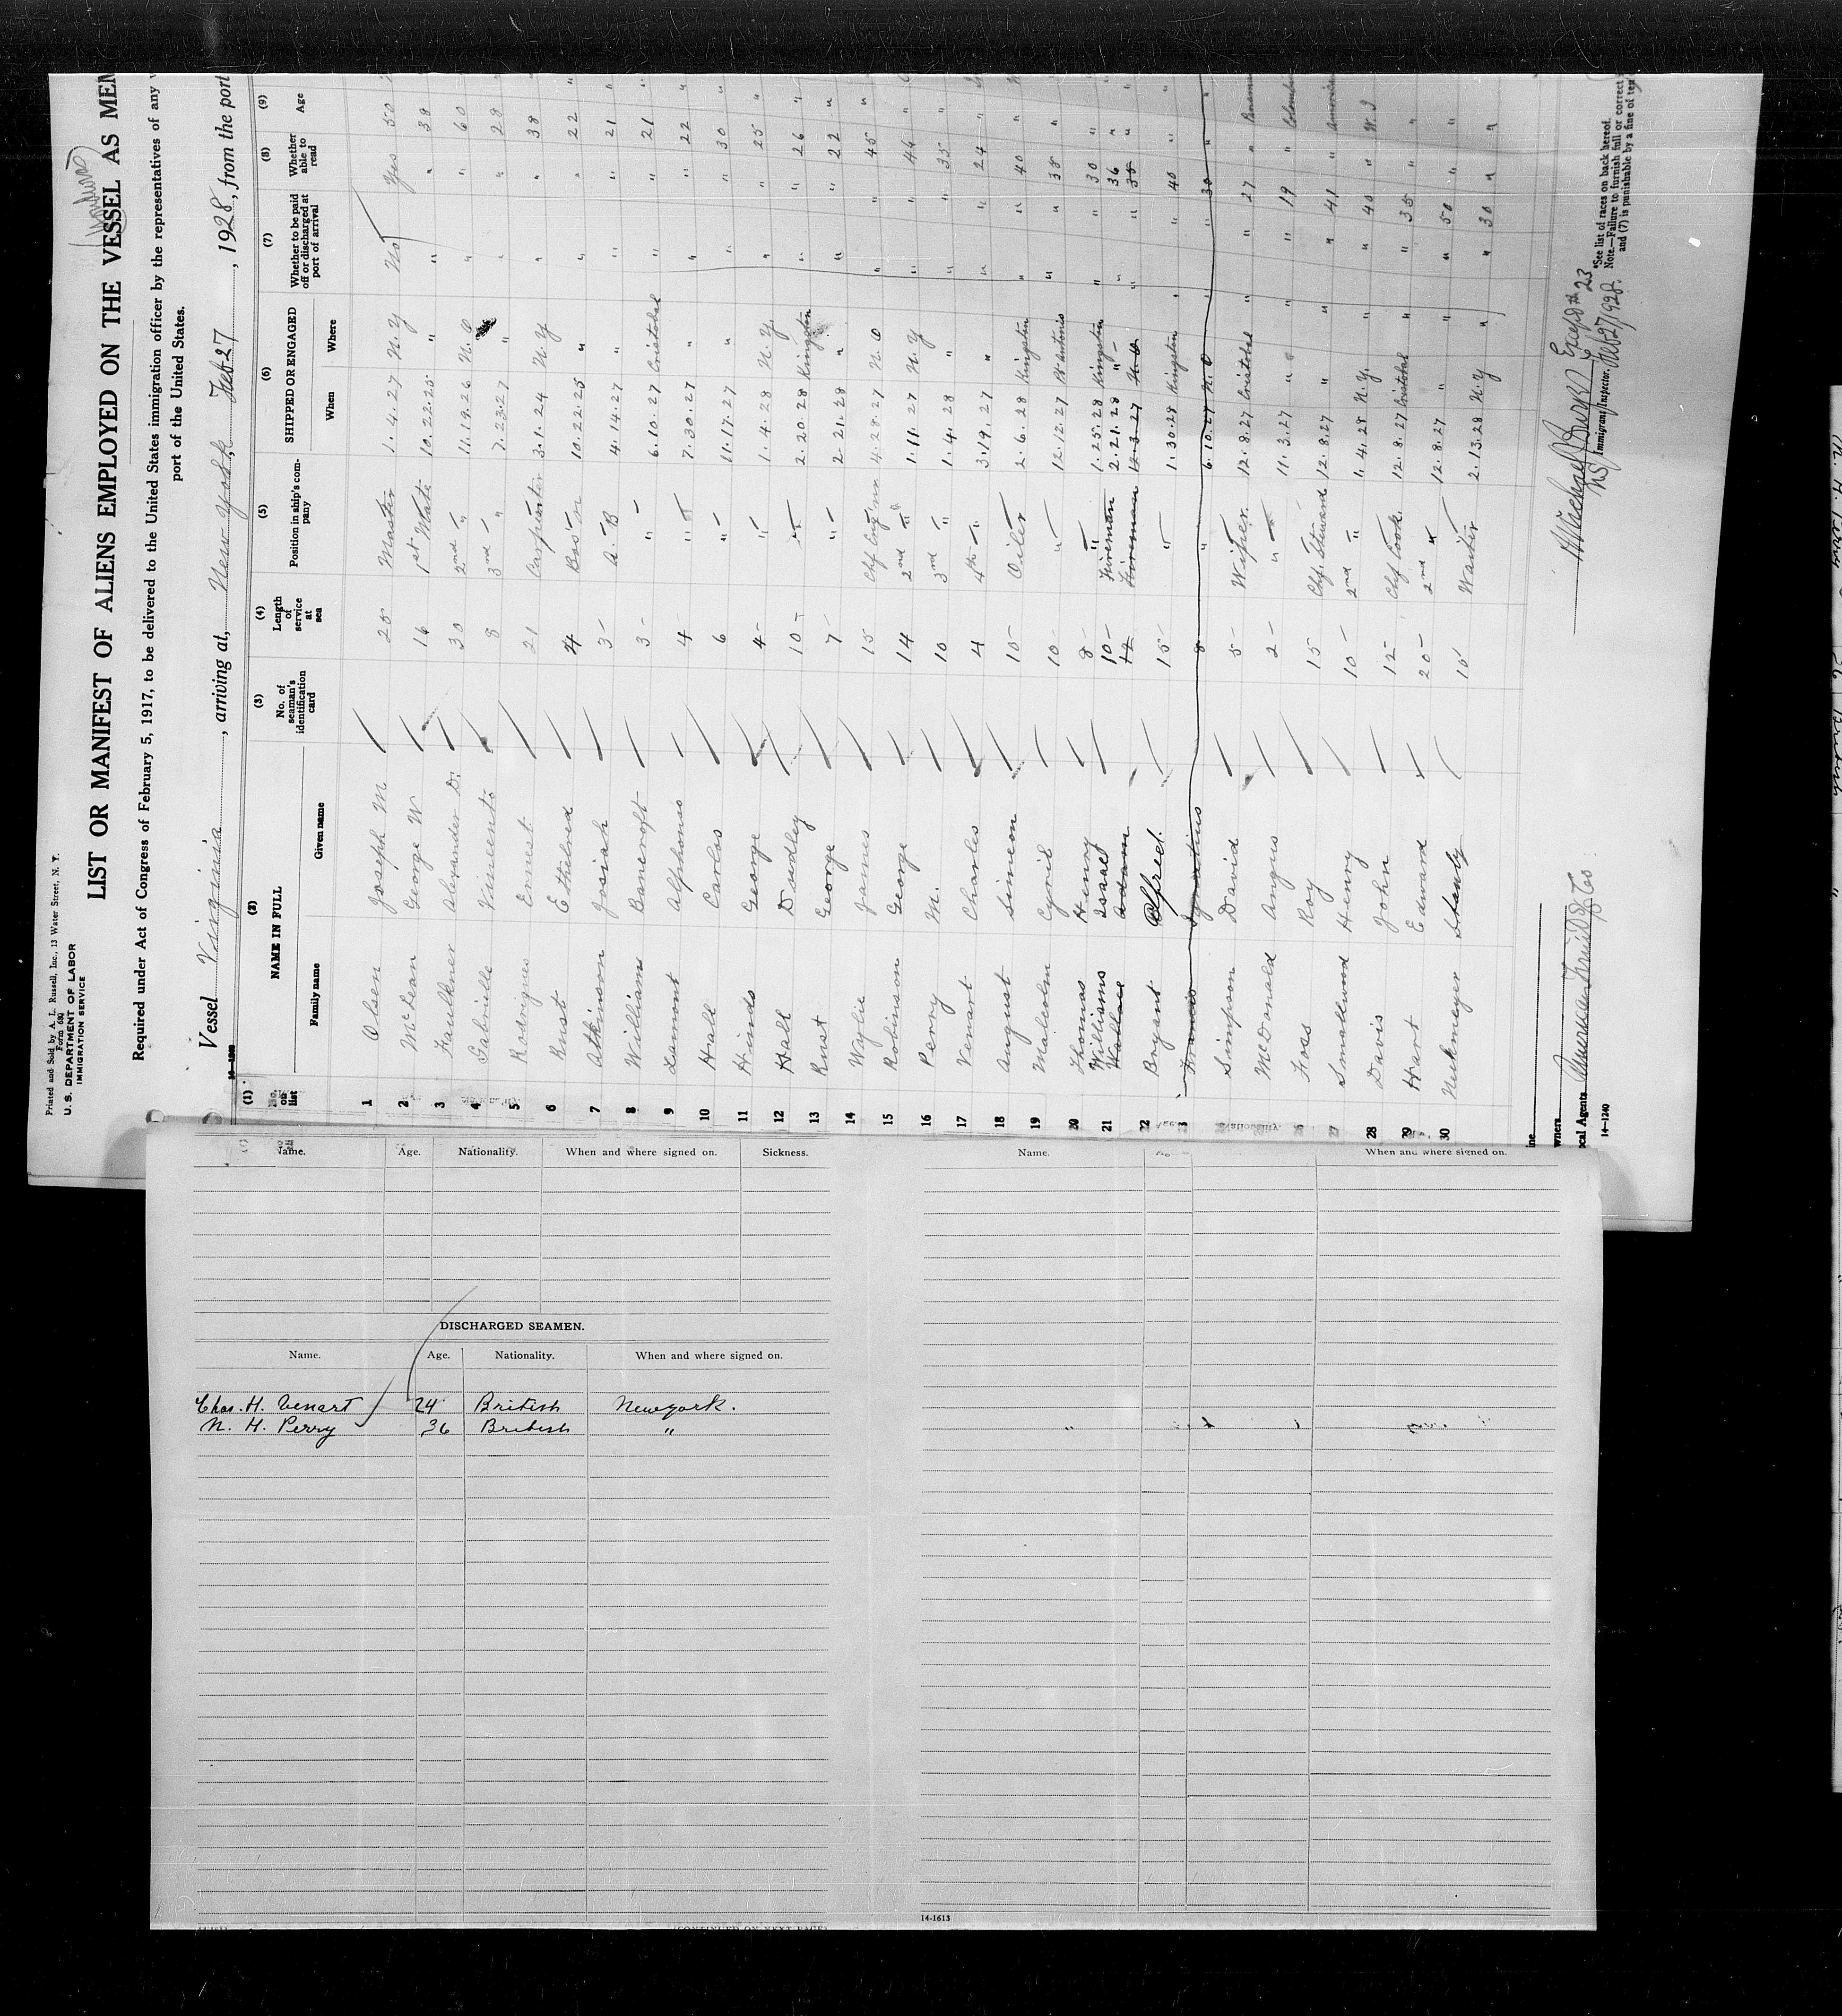 Printed and Sold by A. L. Russell, Inc., 13 Water Street, N. Y.
Form 680
U. S. DEPARTMENT OF LABOR
IMMIGRATION SERVICE
LIST OR MANIFEST OF ALIENS EMPLOYED ON THE VESSEL AS MEM
Required under Act of Congress of February 5, 1917, to be delivered to the United States immigration officer by the representatives of any
port of the United States.
Vessel Virginia, arriving at, New York, Feb 27, 1928, from the port
(1) (2) (3) (4) (5) (6) (7) (8) (9)
No. on list NAME IN FULL No. of seaman's identification card Length of service at sea Position in ship's company SHIPPED OR ENGAGED Whether to be paid off or discharged at port of arrival Whether able to read Age
Family name Given name When Where
1 Olsen Joseph M 28 Master 1.4.27 N.Y No Yes 50
2 McLean George W 16 1st Mate 10.22.25 " " " 38
3 Faulkner Alexander D. 30 2nd " 11.19.26 N.O " " 60
4 Gabrielle Vincento 8 3rd " 7.23.27 " " " 28
5 Rodriques Ernest 21 Carpenter 3.1.24 N.Y " " 38
6 Rust Ethelred 4 Bos'n 10.22.25 " " " 22
7 Atkinson Josiah 3 A.B 4.14.27 " " " 21
8 Williams Bancroft 3 " 6.10.27 Cristobal " " 21
9 Lamont Alphonso 4 " 7.30.27 " " " 22
10 Hall Carlos 6 " 11.17.27 " " " 30
11 Hinds George 4 " 1.4.28 N.Y. " " 25
12 Hall Dudley 10 " 2.20.28 Kingston " " 26
13 Rust George 7 " 2.21.28 " " " 22
14 Wylie James 15 Chf Eng 4.28.27 N.O " " 45
15 Robinson George 14 2nd " 1.11.27 N.Y " " 44
16 Perry M. 10 3rd " 1.4.28 " " " 35
17 Venart Charles 4 4th " 3.19.27 " " " 24
18 August Simeon 10 Oiler 2.6.28 Kingston " " 40
19 Malcolm Cyril 10 " 12.12.27 Pt Antonio " " 38
20 Thomas Henry 8 " 1.25.28 Kingston " " 30
21 Williams Isaac 10 Fireman 2.21.28 " " " 36
Wallace Adam 12 Fireman 12.3.27 N.O " " 35
22 Bryant Alfred. 15 " 1.30.28 Kingston " " 40
23 Francis Ignatius 8 " 6.10.27 N.O " " 30
Simpson David 5 Wiper 12.8.27 Cristobal " " 27 Panama
McDonald Angus 2 " 11.3.27 " " " 19 Colombi
26 Foss Roy 15 Chf. Steward 12.8.27 " " " 41 America
27 Smallwood Henry 10 2nd " 1.4.28 N.Y. " " 40 W.I
28 Davis John 12 Chf Cook 12.8.27 Cristobal " " 35 "
29 Hart Edward 20 2nd " 12.8.27 " " " 50 "
30 Neckmeyer Stanly 10 Waiter 2.13.28 N.Y " " 30 "
Except # 23
Immigrant Inspector. Feb 27/928.
*See list of races on back hereof.
Note.—Failure to furnish full or correct
and (7) is punishable by a fine of ten
ine
wners
cal Agents American Fruit & SS Co
14—1240
Name. Age. Nationality. When and where signed on. Sickness.
DISCHARGED SEAMEN.
Name. Age. Nationality. When and where signed on.
Chas. H. Venart 24 British New york.
N. H. Perry 36 British "
(CONTINUED ON NEXT PAGE)
Name. When and where signed on.
14-1613